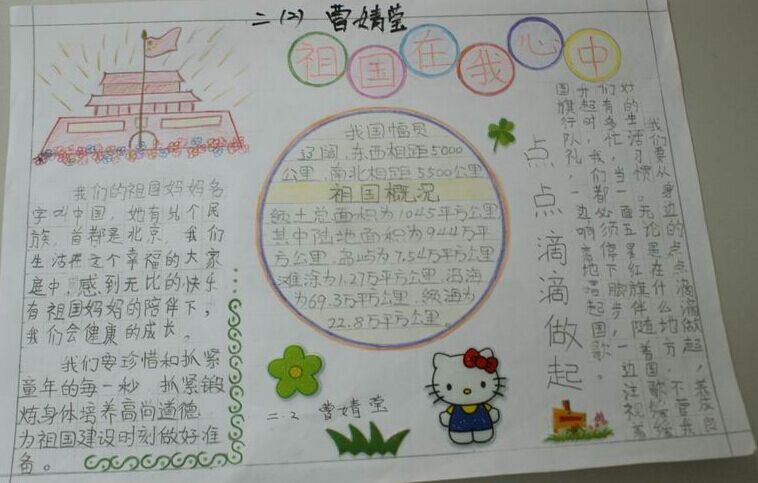 二(2) 曹婧莹
祖国在我心中
我们的祖国妈妈名
字叫中国，她有56个民
族，首都是北京，我们
生活在这个幸福的大家
庭中，感到无比的快乐，
有祖国妈妈的陪伴下，
我们会健康的成长。
我们要珍惜和抓紧
童年的每一秒，抓紧锻
炼身体培养高尚道德
为祖国建设时刻做好准
备。
我国幅员
辽阔，东西相距5000
公里，南北相距5500公里
祖国概况
领土总面积为1045平方公里
其中陆地面积为944万平
方公里，岛屿为7.54万平方公里
滩涂为1.27万平方公里，沿海
为69.3万平方公里，领海为
22.8万平方公里。
二.2 曹婧莹
点点滴滴做起
我们要从身边的点点滴滴做起，养成良
好的生活习惯。无论是在什么地方，不管我
们有多忙，当一面五星红旗伴随着国歌缓缓
升起时，我们都必须停下脚步，一边注视着
国旗行队礼，一边响亮地唱起国歌。